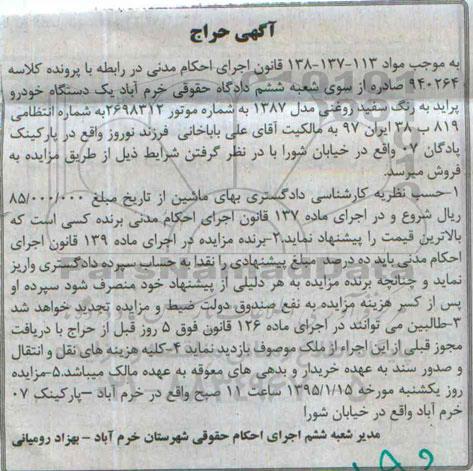 آگهی حراج
به موجب مواد ۱۱۳-۱۳۷-۱۳۸ قانون اجرای احکام مدنی در رابطه با پرونده کلاسه
۹۴۰۲۶۴ صادره از سوی شعبه ششم دادگاه حقوقی خرم آباد یک دستگاه خودرو
پراید به رنگ سفید روغنی مدل ۱۳۸۷ به شماره موتور ۲۶۹۸۳۱۲به شماره انتظامی
۸۱۹ ب ۳۸ ایران ۹۷ به مالکیت آقای علی باباخانی فرزند نوروز واقع در پارکینگ
پادگان ۰۷ واقع در خیابان شورا با در نظر گرفتن شرایط ذیل از طریق مزایده به
فروش میرسد.
۱-حسب نظریه کارشناسی دادگستری بهای ماشین از تاریخ مبلغ ۸۵/۰۰۰/۰۰۰
ریال شروع و در اجرای ماده ۱۳۷ قانون اجرای احکام مدنی برنده کسی است که
بالاترین قیمت را پیشنهاد نماید.۲-برنده مزایده در اجرای ماده ۱۳۹ قانون اجرای
احکام مدنی باید ده درصد مبلغ پیشنهادی را نقدا به حساب سپرده دادگستری واریز
نماید و چنانچه برنده مزایده به هر دلیلی از پیشنهاد خود منصرف شود سپرده او
پس از کسر هزینه مزایده به نفع صندوق دولت ضبط و مزایده تجدید خواهد شد
۳-طالبین می توانند در اجرای ماده ۱۲۶ قانون فوق ۵ روز قبل از حراج با دریافت
مجوز قبلی از این اجراء از ملک موصوف بازدید نماید ۴-کلیه هزینه های نقل و انتقال
و صدور سند به عهده خریدار و بدهی های معوقه به عهده مالک میباشد.۵-مزایده
روز یکشنبه مورخه ۱۳۹۵/۱/۱۵ ساعت ۱۱ صبح واقع در خرم آباد –پارکینک ۰۷
خرم آباد واقع در خیابان شورا
مدیر شعبه ششم اجرای احکام حقوقی شهرستان خرم آباد - بهزاد رومیانی
ParsNamadData